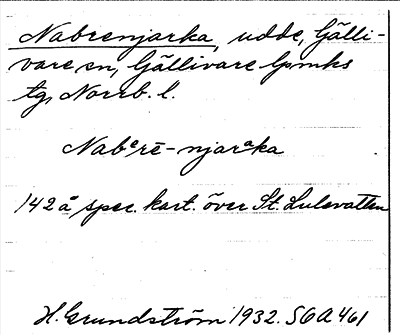 Nabrenjarka, udde, Gälli-
vare sn, Gällivare lpmks
tg, Norrb. l.
Nabᵉrē-njarᵃka
142 å spec. kart. över St. Lulevatten
H. Grundström 1932. SOA 461